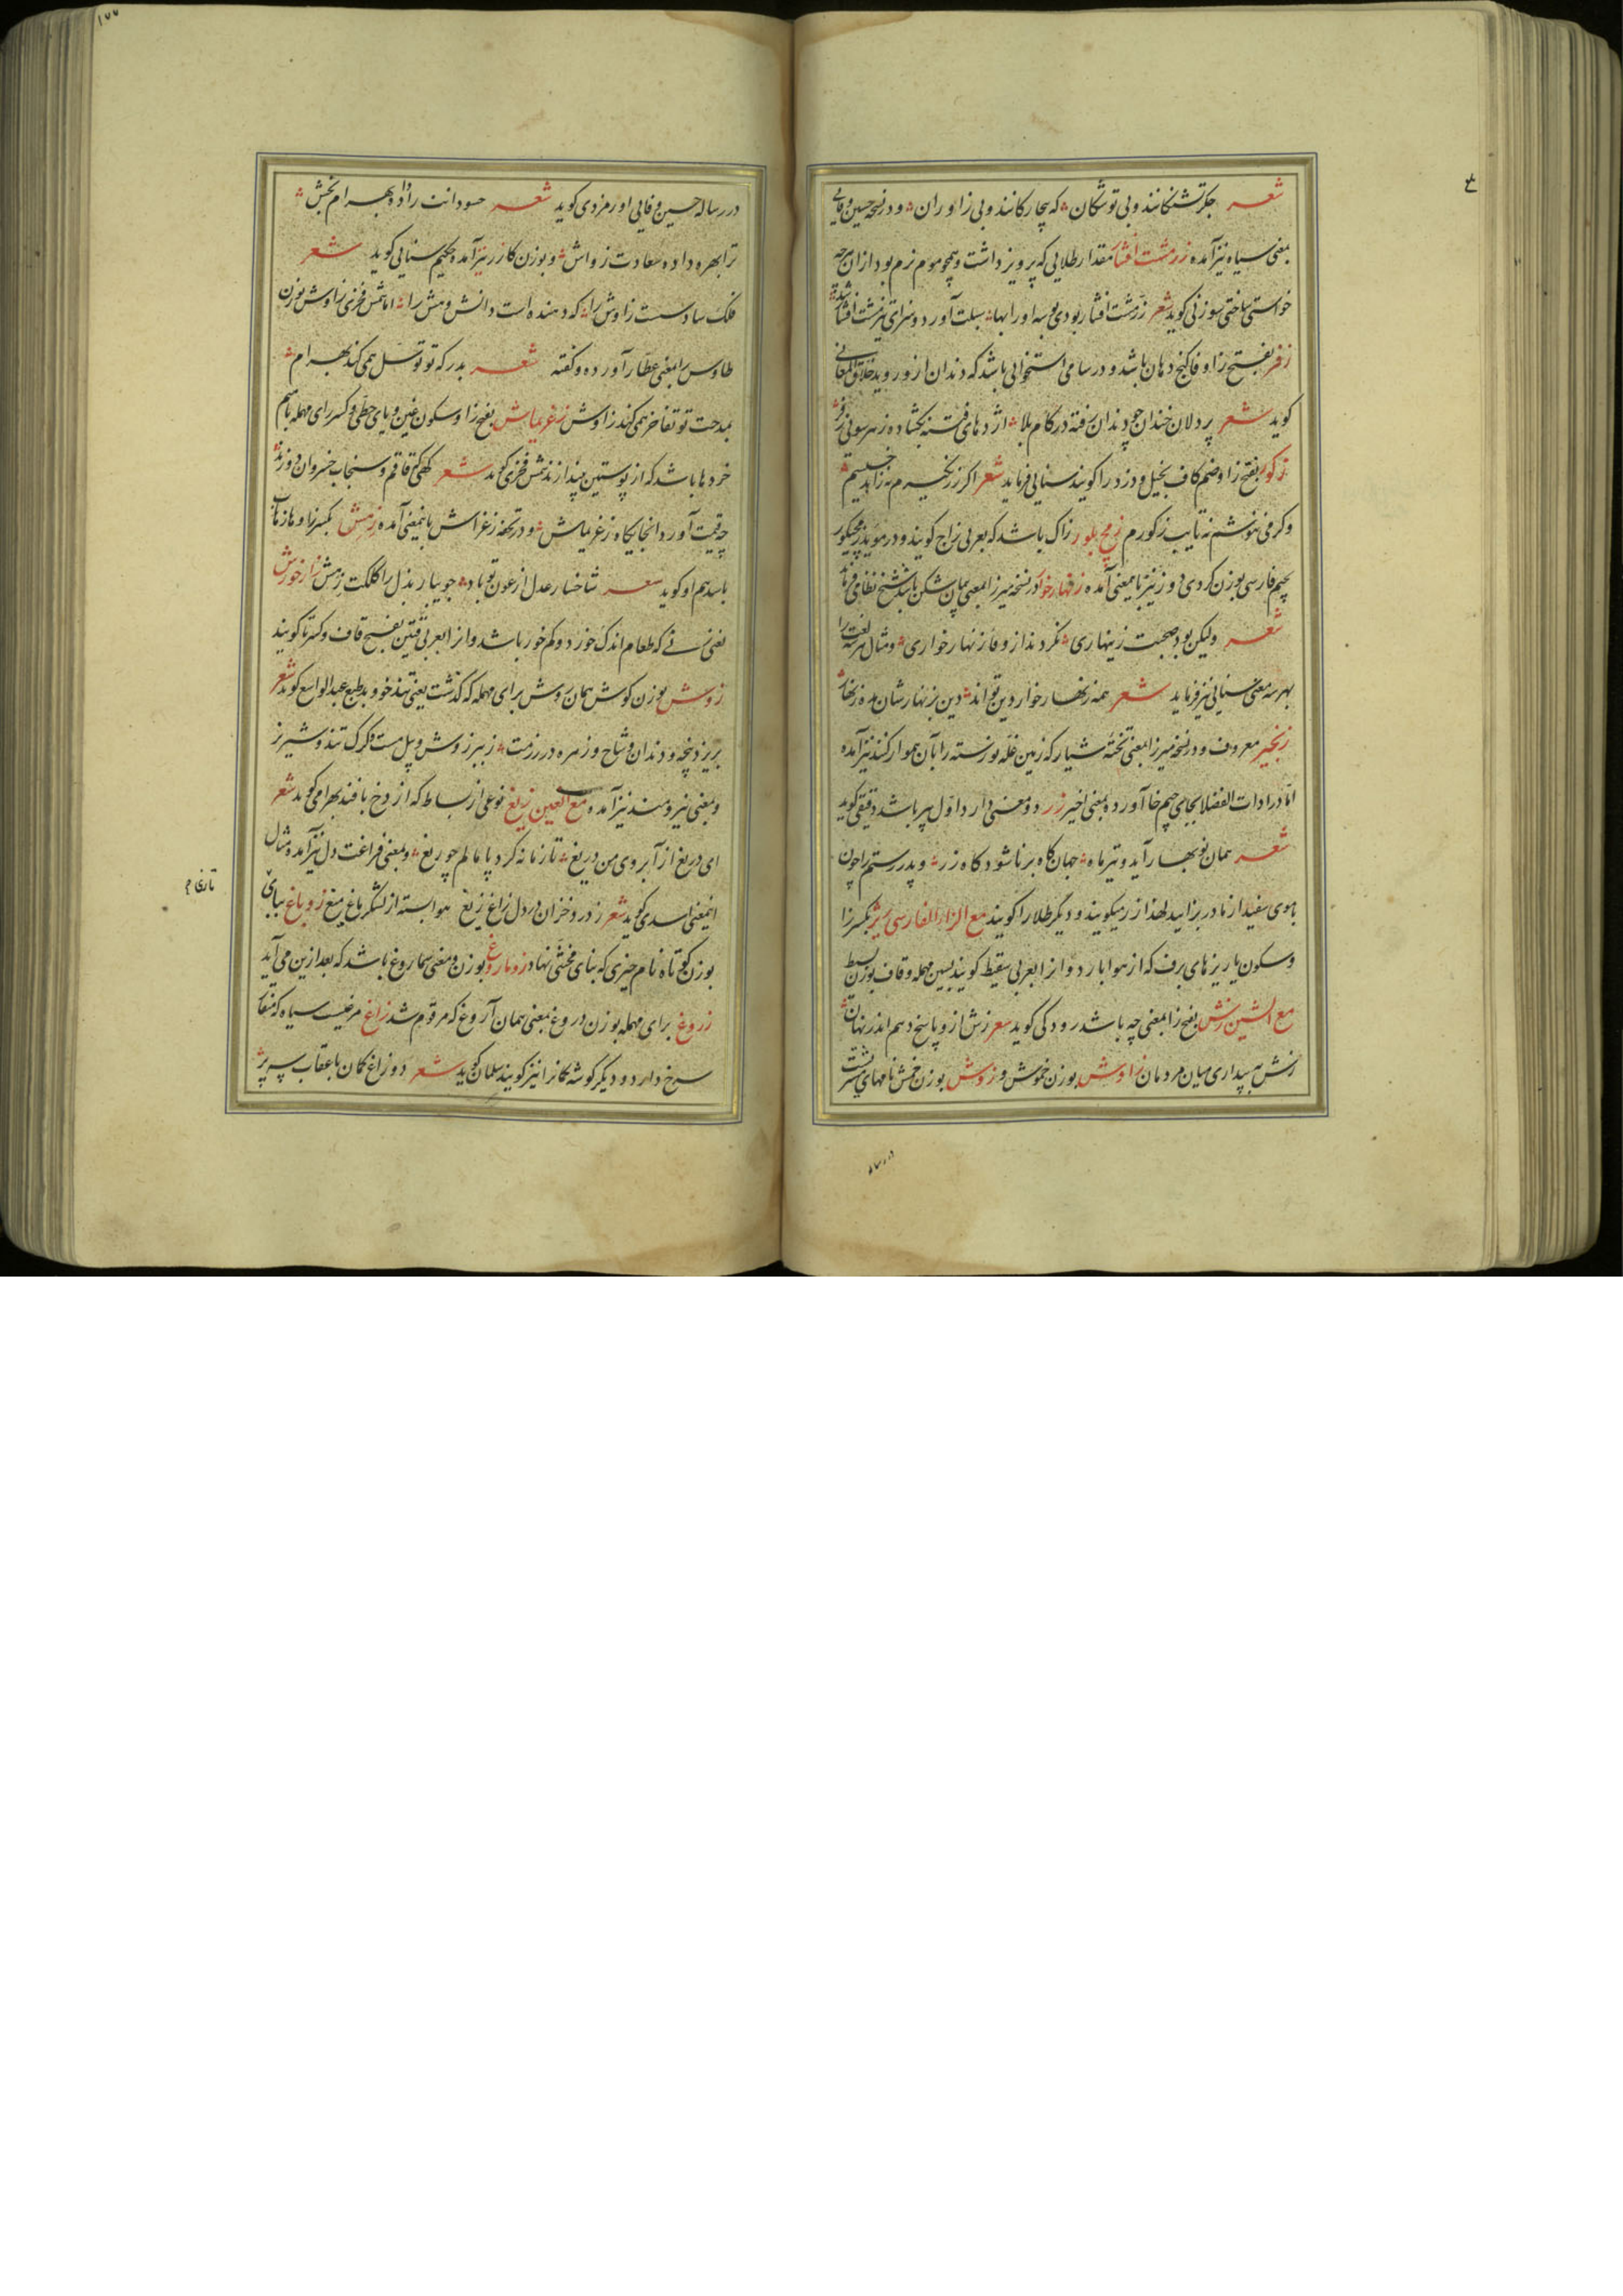 شعر جگر تشنگانند و بی توشگان که بیچارگانند و بی زاوران و در نسخه حسین وفایی
بمعنی سیاه نیز آمده زر مشت افشار مقدار طلایی که پرویز داشت و همچو موم نرم بود از آن هرچه
خواستی ساختی سوزنی کوید شعر زر مشت افشار بودی بوسه او را بها
زفر بفتح زا و فا کنج دهان باشد و در سامی استخوانی باشد که دندان از و روید خلاق المعانی
کوید شعر پر دلان خندان چو دندان رفته در کام بلا اژدهای فتنه بکشاده ز هر سویی زفر
زکور بفتح زا و ضم کاف بخیل و دزد را کویند سنایی فرماید شعر اکر زر نخیرم نه زاهد خسیسم
وکر می ننوشم نه تایب زکورم زمج بلور زاک باشد که بعربی زاج کویند و در موید زمچکور
بجیم فارسی بوزن کردی دور نیز باین معنی آمده زنهار خوار در نسخه میرزا بمعنی پیمان شکن باشد شیخ نظامی فرماید
شعر ولیکن بود صحبت زینهاری نکردند از وفا زنهار خواری و مثال هر سه لغت را
بهر سه معنی سنایی نیز فرماید شعر همه زنهار خوار دین تواند دین بزنهارشان مده زنهار
زنجیر معروف و در نسخه میرزا بمعنی تخته شیار که زمین غله نورسته را بآن هموار کنند نیز آمده
اما در ادات الفضلا بجای جیم خا آورده بمعنی اخیر زر دو معنی دارد اول پیر باشد دقیقی کوید
شعر همان نوبهار آید و تیر ماه جهان کاه برنا شود کاه زر و پدر رستم را چون
با موی سفید از مادر بزایید لهذا زر میکویند و دیگر طلا را کویند مع الزاء الفارسی زیژ بکسر زا
و سکون یا ریزهای برف که از هوا بارد و آنرا بعربی سقیط کویند بسین مهمله و قاف بوزن بسیط
مع الشین زش بفتح زا بمعنی چه باشد رودکی کوید شعر زش ازو پاسخ دهم اندر نهان
زش به پیداری میان مردمان زاوش بوزن خموش و زوش بوزن خمش نامهای مشتریست
در رساله حسین وفایی اورمزدی کوید شعر حسودانت را داده بهرام بخش
ترا بهره داده سعادت زواش و بوزن کازر نیز آمده حکیم سنایی کوید شعر
فلک سادست زاوش را که دهنده است دانش و هش را اما شمس فخری زاوش بوزن
طاوس را بمعنی عطارد آورده و کفته شعر بدرکه تو توسل همی کند بهرام
بمدحت تو تفاخر همی کند زاوش زغریماش بفتح زا و سکون غین و یای حطی و کسر رای مهمله با میم
خردها باشد که از پوستین بیندازند شمس فخری کوید شعر کهی که قاقم و سنجاب خسروان دوزند
چه قیمت آورد آنجایگاه زغریماش و در تحفه زغراش باینمعنی آمده زهش بکسر زا و ها زهاب
باشد هم او کوید شعر شاخسار عدل از عون تو باد جویبار بذل را کلکت زهش زار خورش
یعنی زنی که طعام اندک خورد و کم خور باشد و آنرا بعربی قتین بفتح قاف و کسر تا کویند
زوش بوزن کوش همان روش برای مهمله که کذشت یعنی تند خو و بد طبع عبد الواسع کوید شعر
بریزد پنجه و دندان و شاخ و زهره در رزمت ز ببر زوش و پیل مست و کرک تند و شیر نر
و بمعنی نیرومند نیز آمده مع الغین زیغ نوعی از بساط که از دخ بافند بهرامی کوید شعر
ای دریغ از آبروی من دریغ تا زمانه کرد پامالم چو زیغ و بمعنی فراغت دل نیز آمده و مثال
اینمعنی اسدی کوید شعر ز درد خزان در دل زاغ زیغ هوا بسته از لشکر باغ میغ زوباغ ببای
بوزن کوتاه نام چیزی که بنای مخنثی نهاد زوماروغ بوزن و معنی سماروغ باشد که بعد ازین می آید
زروغ برای مهمله بوزن دروغ بمعنی همان آروغ که مرقوم شد زاغ مرغیست سیاه که منقار
سرخ دارد و دیگر کوشه کمان را نیز کویند سلمان کوید شعر دو زاغ کمان با عقاب سه پر